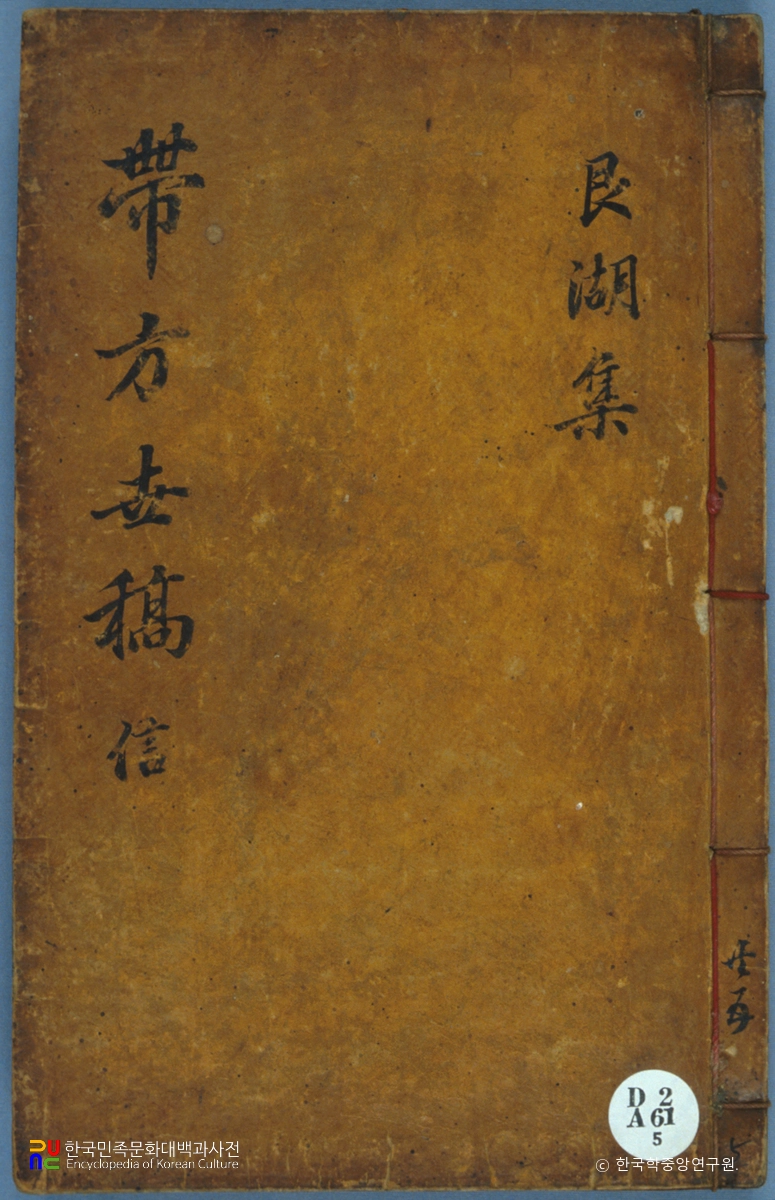 艮湖集
帶方世稿 信
共五
D 2
A 61
5
한국민족문화대백과사전
Encyclopedia of Korean Culture
© 한국학중앙연구원.